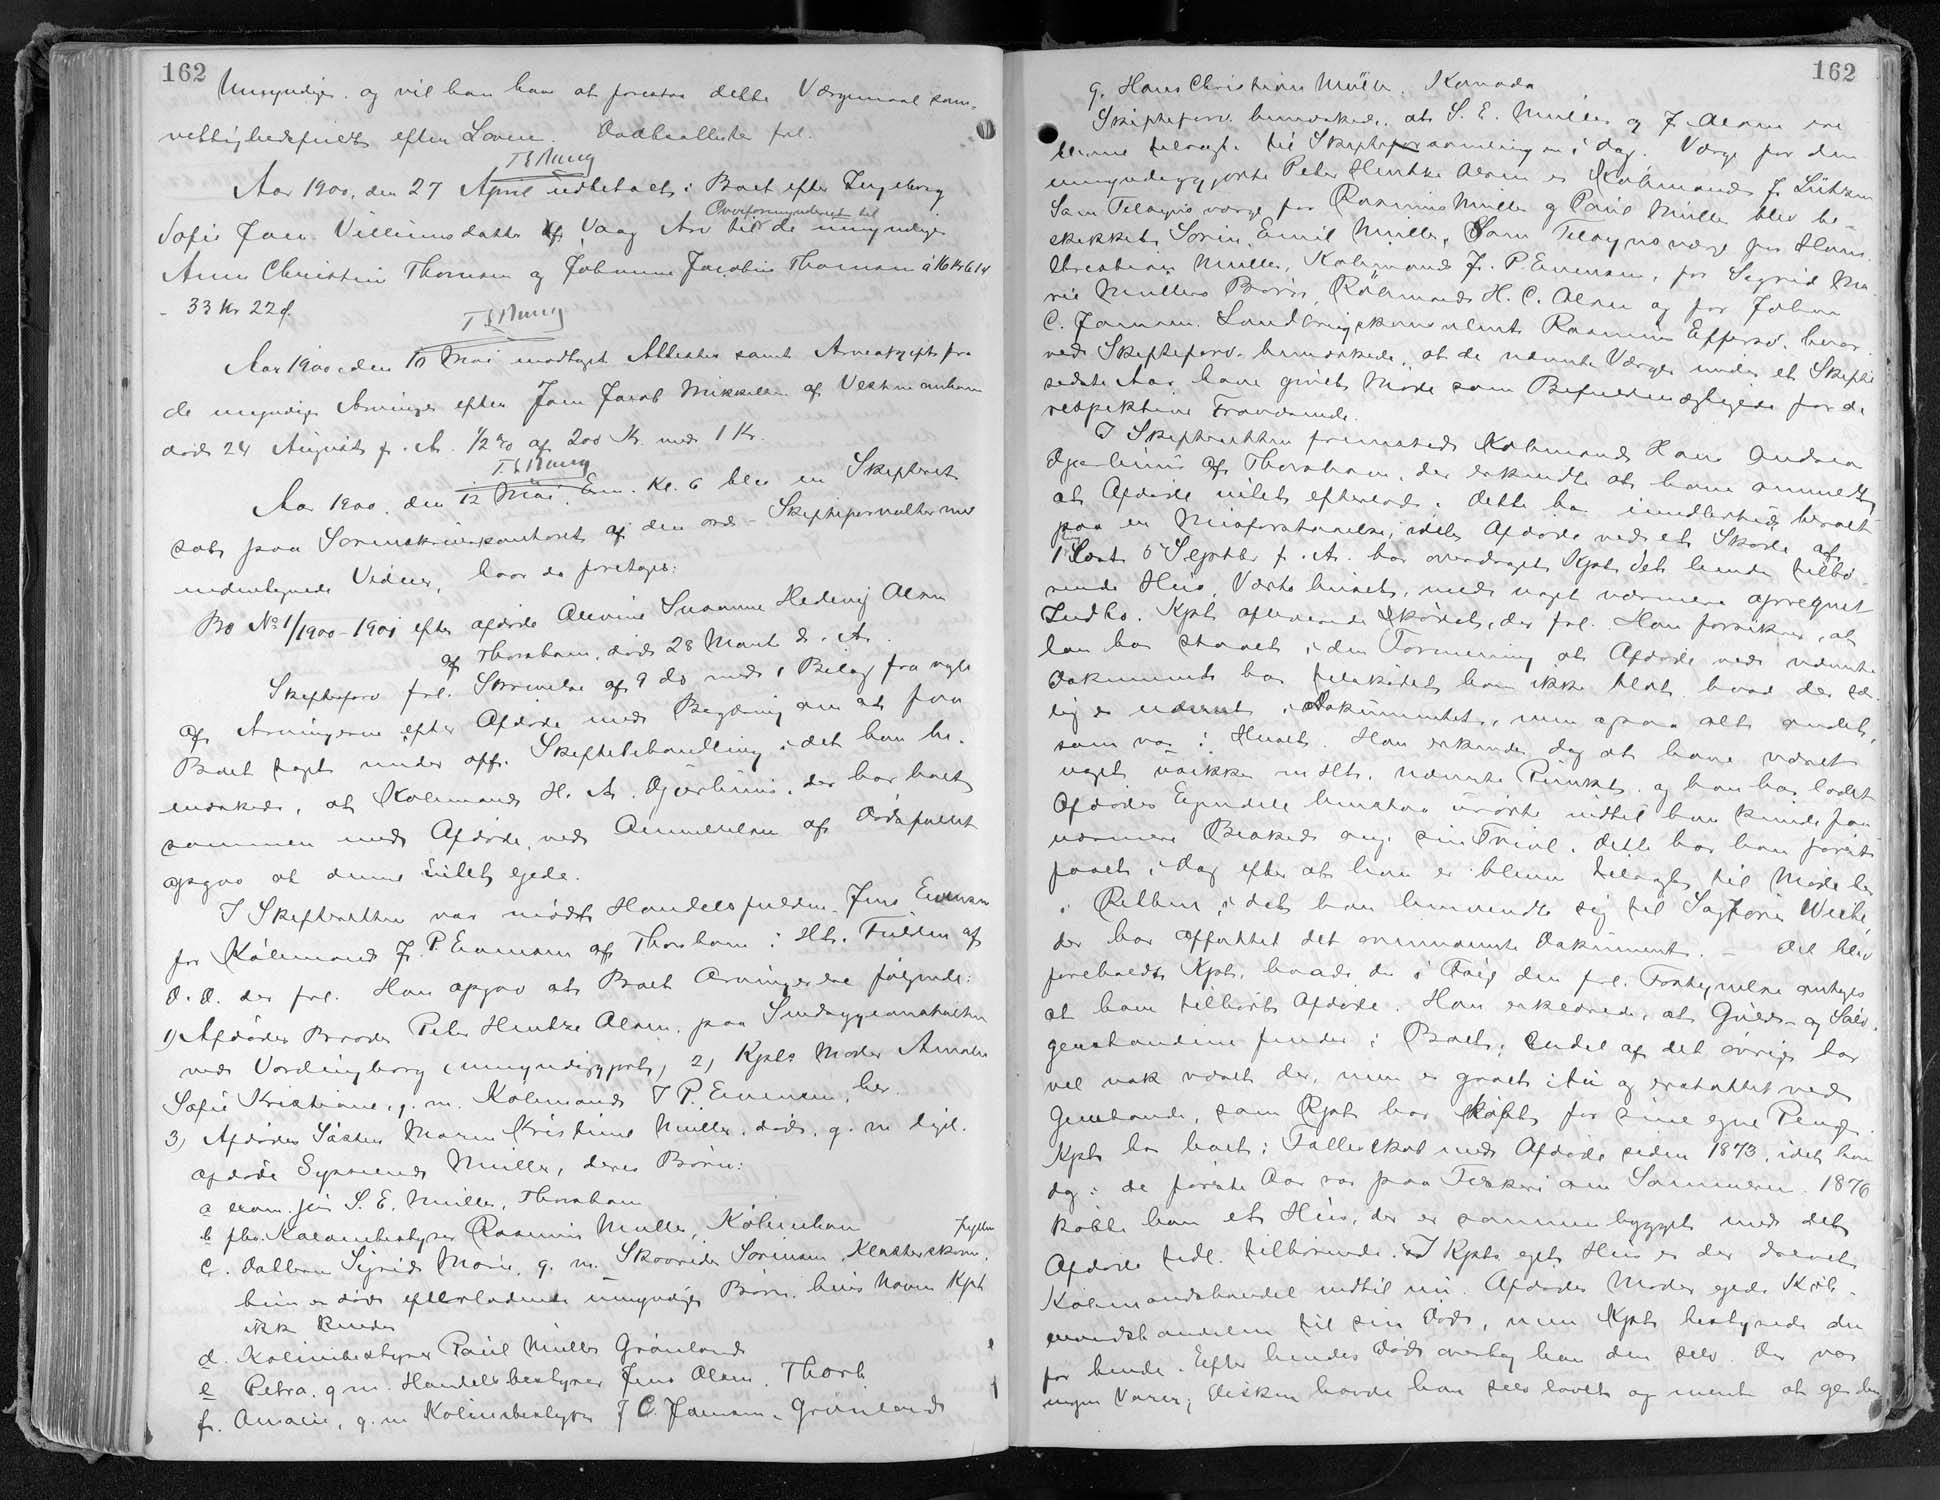 162
Umyndige. og vil han have at forestaa dette Værgemaal sam-
vittighedsfuldt efter Loven. Daabsattester frl.
Aar 1900, den 27 April udbetalt i Boet efter Ingeborg
Overformynderiet til
Sofie Joen Villiumsdatter af Vaag Arv til de umyndige
Anna Christine Thomsen og Johanne Jacobine Thomsen á 16 Kr 61
- 33 Kr 22 Ø.
Aar 1900 den 10 Mai modtaget Attester samt Arveafgift fra
de myndige Arvinger efter Joen Jacob Mikkelsen af Vestmanhavn
død 24 August f. A. 1/2 % af 200 Kr. med 1 Kr.
Aar 1900, den 12 Mai Em. Kl. 6 blev en Skifteret
sat paa Sorenskriverkontoret af den ord. Skifteforvalter med
undertegnede Vidner, hvor da foretoges:
Bo No 1/1900-1901 efter afdøde Alevine Susanne Hedevig Olsen
af Thorshavn, død 28 Marts d. A.
Skifteforv frl. Skrivelse af 9 ds med 1 Bilag fra nogle
af Arvingerne efter Afdøde med Begæring om at faa
Boet taget under off. Skiftebehandling, idet han be-
mærkede, at Købmand H. A. Djurhuus, der har boet
sammen med Afdøde, ved Anmeldelsen af Dødsfaldet
opgav at denne intet ejede.
I Skifteretten var mødt Handelsfuldm. Jens Evensen
for Købmand J. P. Evensen af Thorshavn i Hh. Fuldm af
D. D. der frl. Han opgav at Boets Arvinger ere følgende:
1) Afdødes Broder Peter Hentze Olsen, paa Sindssygeanstalten
ved Vordingborg (umyndiggjort), 2) Kpts Moder Amalie
Sofie Kristiane, g. m. Købmand J P. Evensen, her.
3) Afdødes Søster Maren Kristine Müller, død, g. m. ligel.
afdøde Sysselmd Müller, deres Børn:
a exam. jur S. E. Müller, Thorshavn
b fhv. Kolonibestyrer Rasmus Müller, København
c. Datteren Sigrid Marie, g. m. Skovrider Sørensen, Klosterskoven,
hun er død efterladende umyndige Børn, hvis Navne Kpt
ikke kender
d. Kolonibestyrer Paul Müller Grønland
e Petra, g m. Handelsbestyrer Jens Olsen, Thorsh
f. Amalie, g. m Kolonibestyrer J C. Jensen, Grønland
162
g. Hans Christian Müller, Kanada
Skifteforv. bemærkede, at S. E. Müller og J. Olsen ere
blevne tilsagt. til Skiftesamlingen i dag. Værge for den
umyndiggjorte Peter Hentze Olsen er Købmand J. Lützen
Som Tilsynsværge for Rasmus Müller og Paul Müller blev be-
skikket Sørin Emil Müller, Som Tilsynsværge for Hans
Christian Müller, Købmand J. P. Evensen, for Sigrid Ma-
rie Müllers Børn, Købmand H. C. Olsen og for Johan
C. Jensen. Landbrugskonsulent Rasmus Effersø, hvor-
ved Skifteforv. bemærkede, at de nævnte Værger under et Skifte
sidste Aar have givet Møde som Befuldmægtigede for de
respektive Fraværende.
I Skifteretten fremstod Købmand Hans Andrea
Djurhuus af Thorshavn, der erkendte at have anmeldt,
at Afdøde intet efterlod. Dette har imidlertid beroet
paa en Misforstaaelse, idet Afdøde ved et Skøde af
1 Sept 6 Septbr f. A. har overdraget Kpt det hende tilhø-
rende Hus, Værtshuset, med noget nærmere opregnet
Indbo. Kpt afleverede Skødet, der frl. Han forsikrer, at
han har staaet i den Formening at Afdøde ved nævnte
Dokument har tilskødet ham ikke blot hvad der sær-
lig er nævnt i Dokumentet, men ogsaa alt andet,
som var i Huset. Han erkender dog at have været
noget usikker m. Ht. nævnte Punkt. og han har ladet
Afdødes Ejendele henstaa urørte indtil han kunde faa
nærmere Besked ang. sin Tvivl. Dette har han først
faaet i Dag efter at han er bleven tilsagt til Møde her
i Retten, idet han henvendte sig til Sagfører Weihe,
der har affattet det ommeldte Dokument. - Det blev
foreholdt Kpt. hvad der i den frl. Fortegnelse antages
at have tilhørt Afdøde. Han erklærede, at Guld- og Sølv-
genstandene findes i Boet, Endel af det øvrige har
vel nok været der, men er gaaet itu og erstattet ved
Genstande, som Kpt har købt for sine egne Penge.
Kpt har boet i Fællesskab med Afdøde siden 1873, idet han
dog i de første Aar var paa Fiskeri om Sommeren. 1876
købte han et Hus, der er sammenbygget med det
Afdøde tidl. tilhørende. I Kpts eget Hus er der drevet
Købmandshandel indtil nu. Afdødes Moder ejede Køb-
mandshandelen til sin Død, men Kpt bestyrede den
for hende. Efter hendes Død overtog han den selv. Der var
ingen Varer; Disken havde han selv lavet og mente at